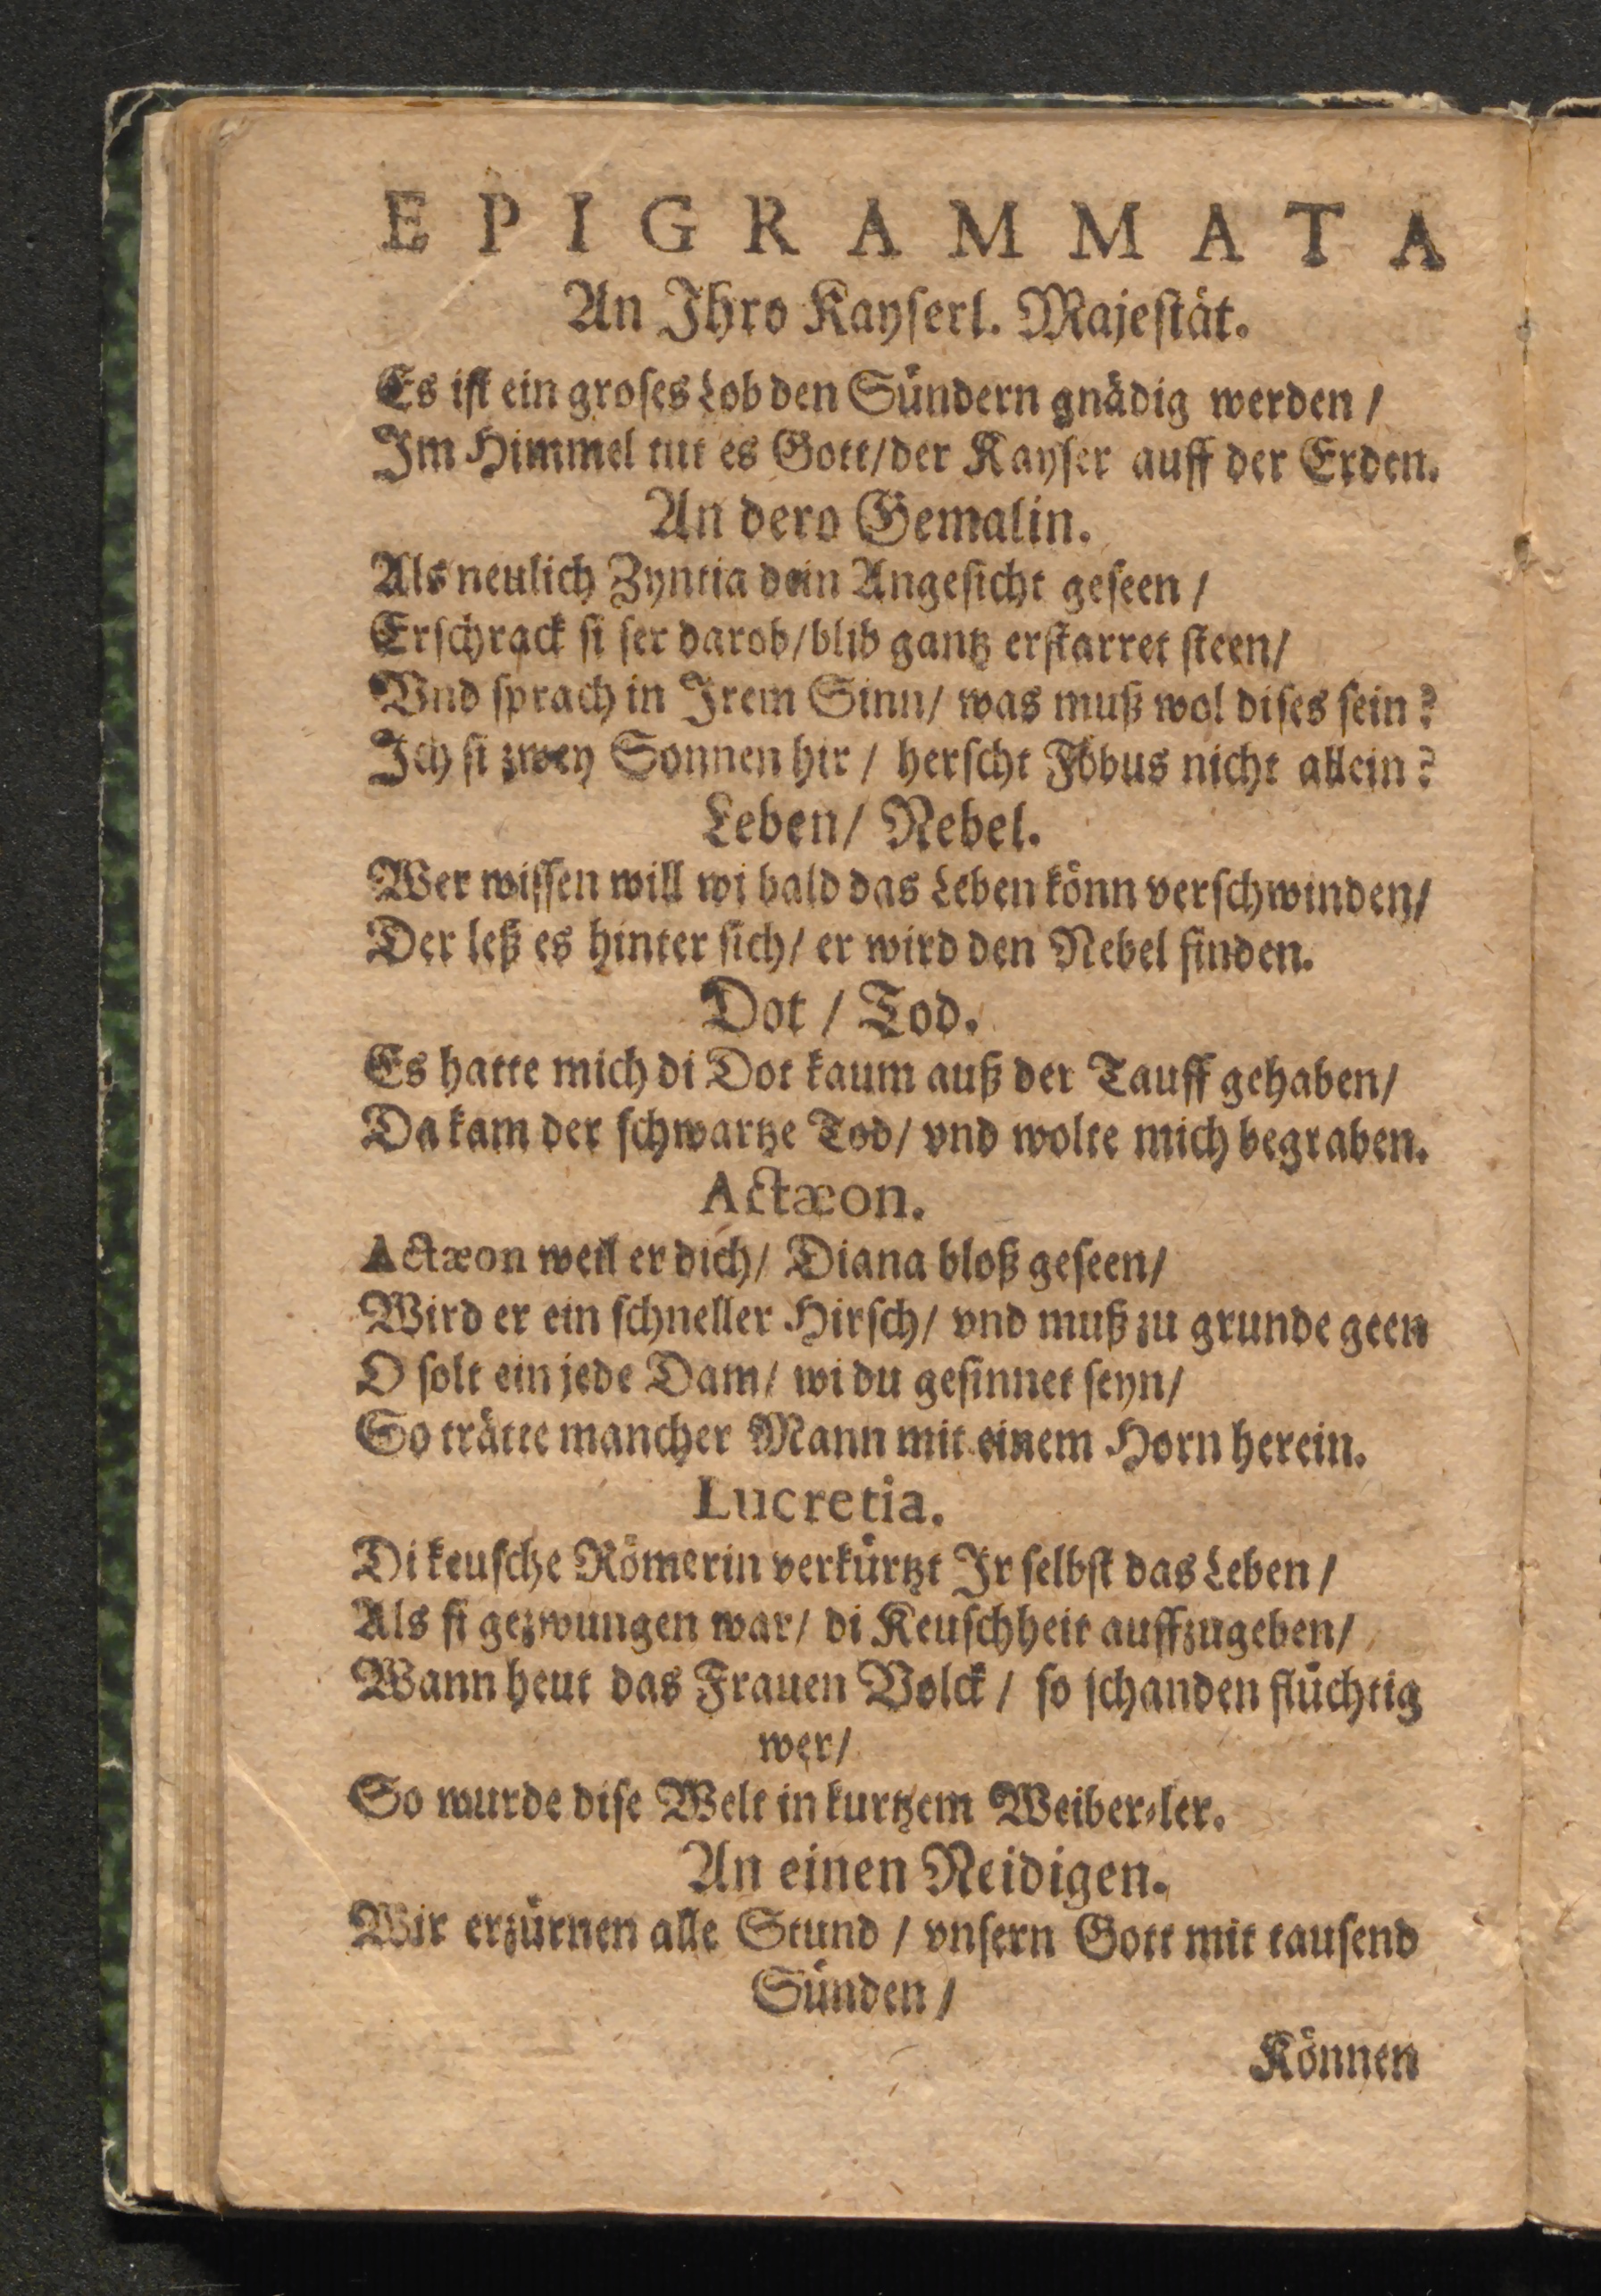 EPIGRAMMATA
An Ihro Kayſerl. Majeſtät.
Es iſt ein groſes Lob den Sündern gnädig werden /
Im Himmel tut es Gott/der Kayſer auff der Erden.
An dero Gemalin.
Als neulich Zyntia dein Angeſicht geſeen /
Erſchrack ſi ſer darob/blib gantz erſtarret ſteen/
Vnd ſprach in Irem Sinn/ was muß wol diſes ſein?
Ich ſi zwey Sonnen hir / herſcht Föbus nicht allein?
Leben/ Nebel.
Wer wiſſen will wi bald das Leben könn verſchwinden/
Der leß es hinter ſich/ er wird den Nebel finden.
Dot / Tod.
Es hatte mich di Dot kaum auß der Tauff gehaben/
Da kam der ſchwartze Tod/ vnd wolte mich begraben.
Actæon.
Actæon weil er dich/ Diana bloß geſeen/
Wird er ein ſchneller Hirſch/ vnd muß zu grunde geen
O ſolt ein jede Dam/ wi du geſinnet ſeyn/
So trätte mancher Mann mit einem Horn herein.
Lucretia.
Di keuſche Römerin verkürtzt Ir ſelbſt das Leben /
Als ſi gezwungen war/ di Keuſchheit auffzugeben/
Wann heut das Frauen Volck / ſo ſchanden flüchtig
wer/
So wurde diſe Welt in kurtzem Weiber⸗ler.
An einen Neidigen.
Wir erzürnen alle Stund / vnſern Gott mit tauſend
Sünden /
Können